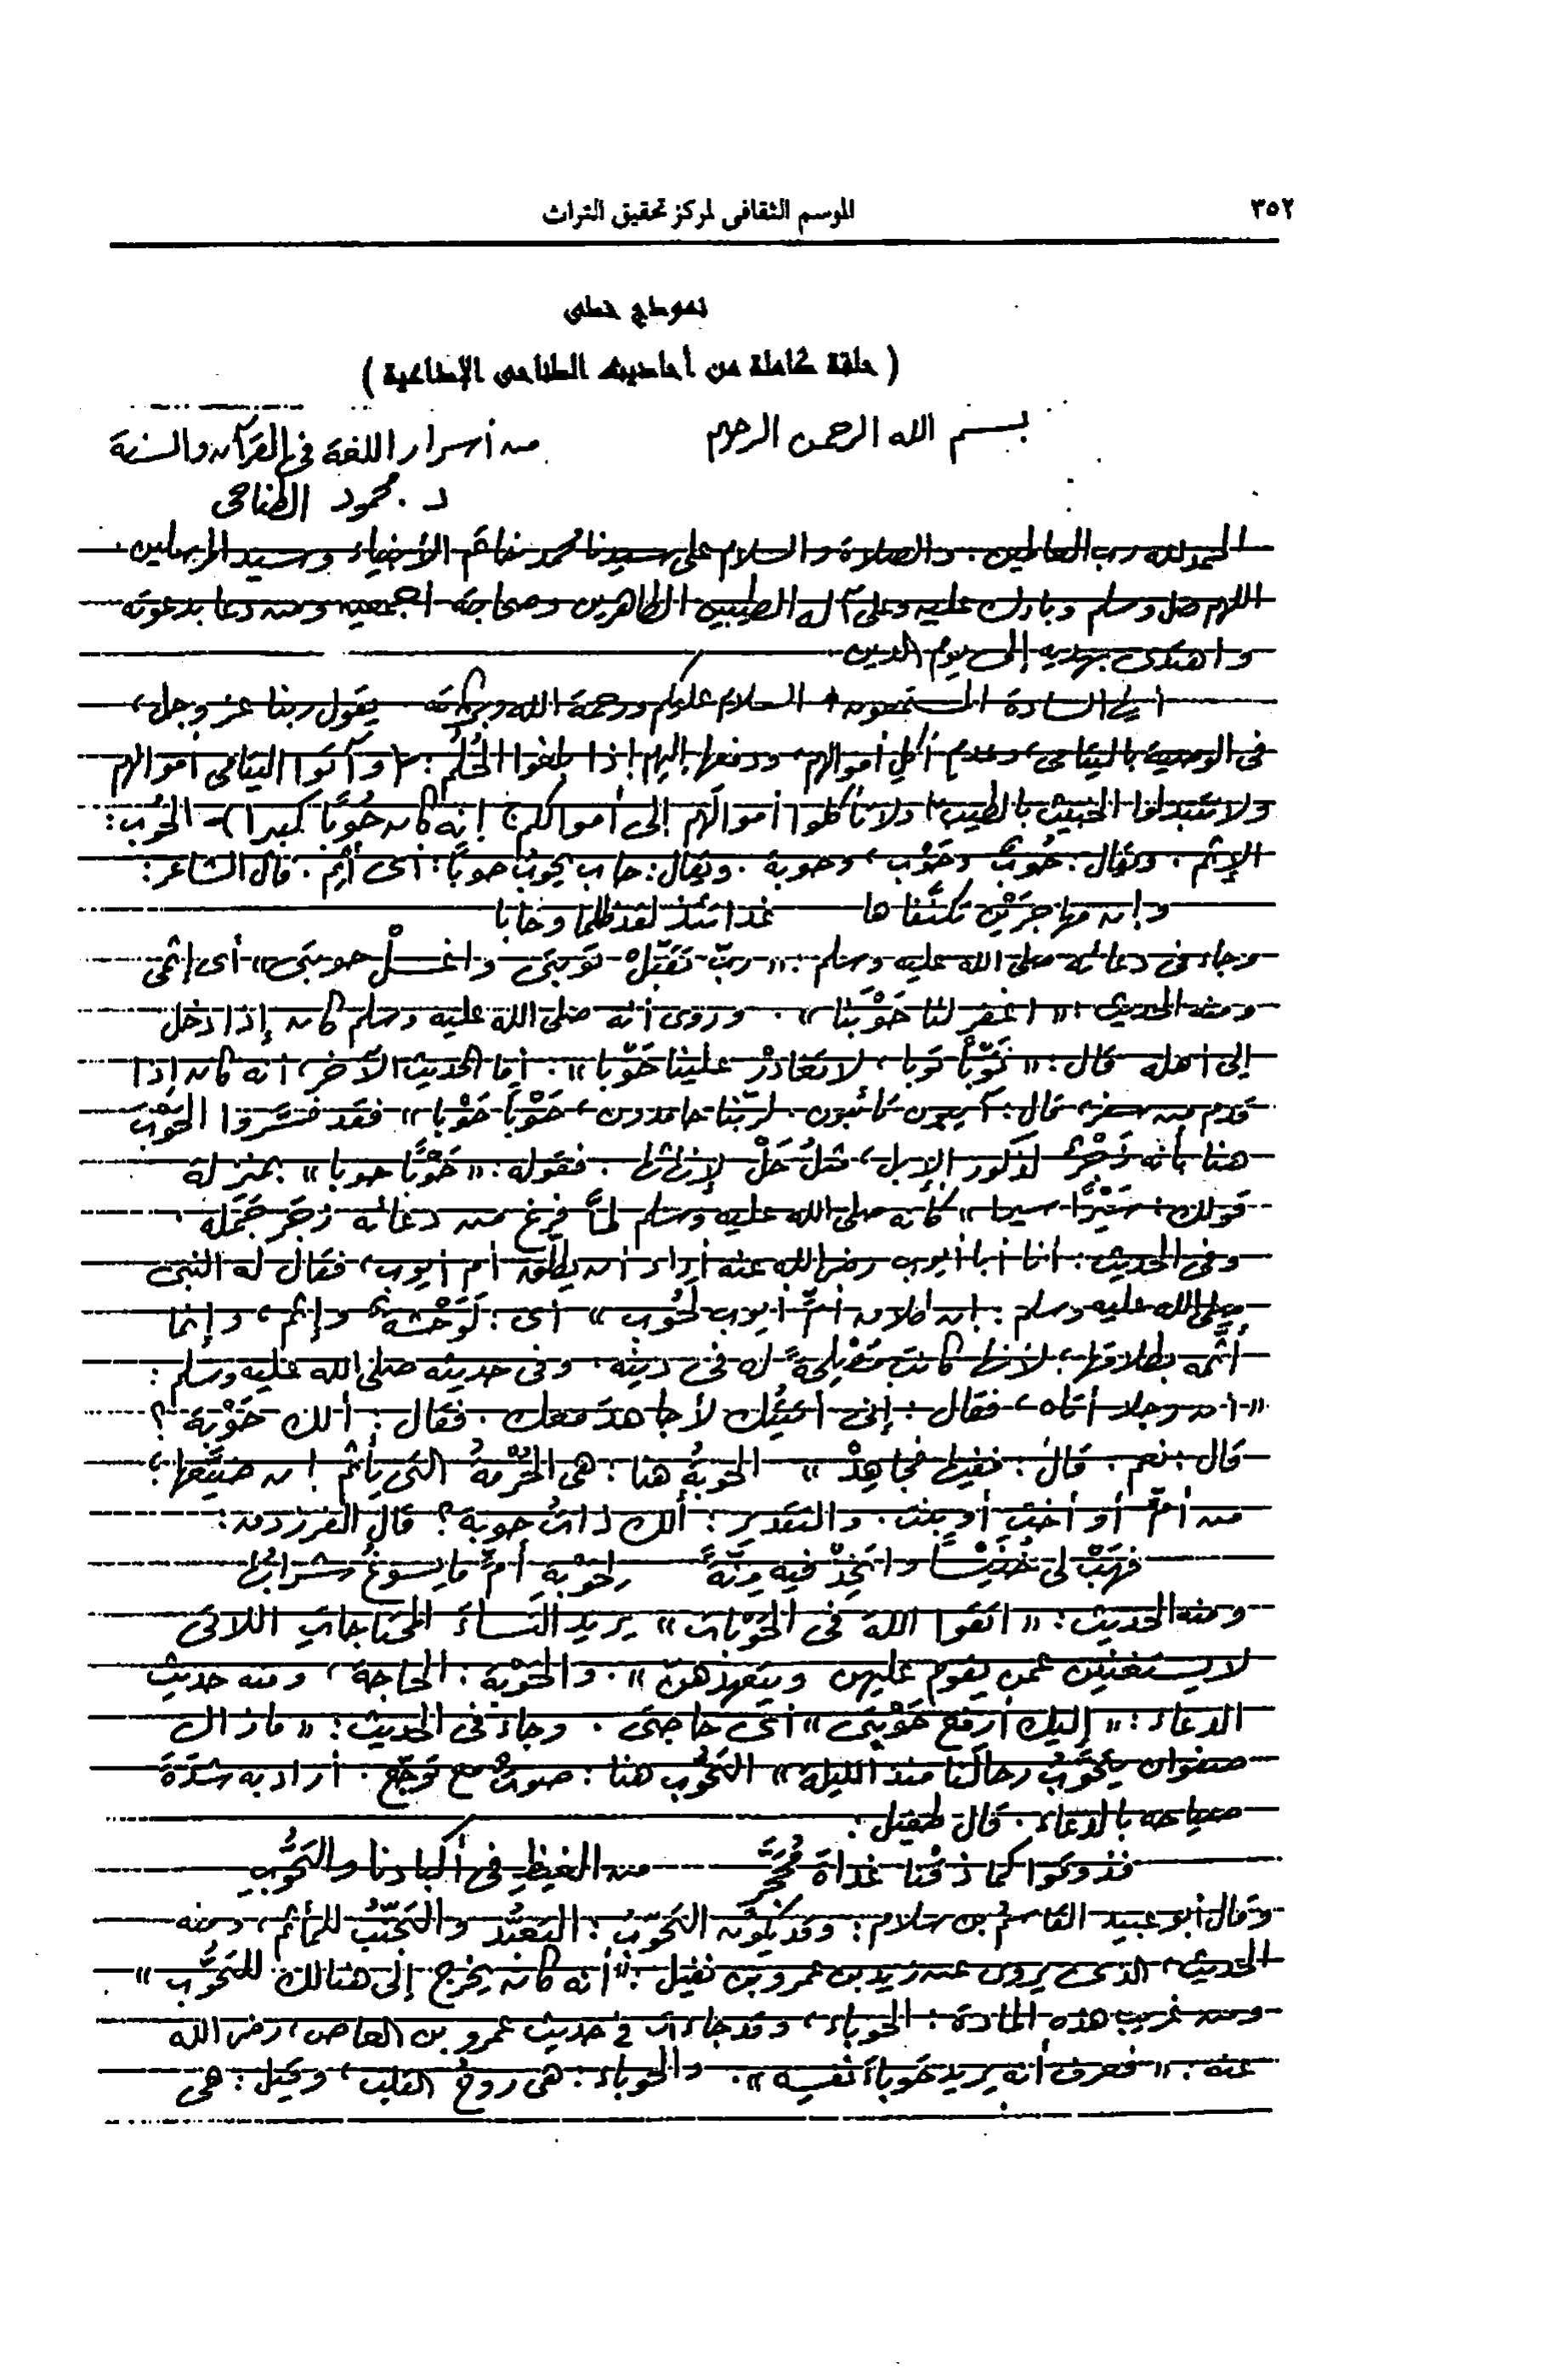 ٣٥٢
الموسم الثقافى لمركز تحقيق التراث
نموذج خطى
( حلقة كاملة من أحاديث الطناحى الإذاعية )
بسم الله الرحمن الرحيم
من أسرار اللغة فى القرآن والسنة
د. محمود الطناحى
الحمد لله رب العالمين. والصلاة والسلام على سيدنا محمد خاتم الأنبياء وسيد المرسلين.
اللهم صل وسلم وبارك عليه وعلى آله الطيبين الطاهرين وصحابته أجمعين ومن دعا بدعوته
واهتدى بهديه إلى يوم الدين.
أيها السادة المستمعون السلام عليكم ورحمة الله وبركاته يقول ربنا عز وجل،
فى الوصية باليتامى، وعدم أكل أموالهم، ودفعها إليهم إذا بلغوا الحُلُم: (وآتوا اليتامى أموالهم
ولا تتبدلوا الخبيث بالطيب ولا تأكلوا أموالهم إلى أموالكم إنه كان حُوبًا كبيرا) - الحُوب:
الإثم. ويقال: حُوبٌ وحَوْب، وحوبة. ويقال: حاب يحوبُ حوبًا: أى أثِم. قال الشاعر:
وإن مهاجرَيْن تكنَّفاها غداتئذ لقد ظلما وخابا
وجاء فى دعائه صلى الله عليه وسلم: «ربّ تقبّلْ توبتى واغسلْ حوبتى» أى إثمى
ومنه الحديث: «اغفر لنا حَوْبنا». وروى أنه صلى الله عليه وسلم كان إذا دخل
إلى أهله قال: «تَوْبًا توبا، لا تغادرْ علينا حَوْبا». أما الحديث الآخر، أنه كان إذا
قدم من سفر، قال: آيبون تائبون. لربّنا حامدون، حَوْبًا حَوْبا» فقد فسَّروا الحَوْبَ
هنا بأنه زَجْرٌ لذكور الإبل، مثلُ حَلْ لإناثها. فقوله: «حَوْبًا حوبا» بمنزلة
قولك: سَيْرًا سيرا» كأنه صلى الله عليه وسلم لمَّا فرغ من دعائه زجَر جَمَله.
وفى الحديث: أن أبا أيوب رضى الله عنه أراد أن يطلّق أم أيوب، فقال له النبى
صلى الله عليه وسلم: إن طلاق أمِّ أيوب لحُوب» أى: لَوَحْشة وإثم، وإنما
أثّمه بطلاقها؛ لأنها كانت مُصْلِحةً له فى دينه. وفى حديثه صلى الله عليه وسلم:
«أن رجلا أتاه، فقال: إنى أتيتُك لأجاهدَ معك. فقال: ألك حَوْبة؟
قال: نعم. قال: ففيها فجاهِدْ» الحوبةُ هنا: هى الحُرْمةُ التى يأثم إن ضيَّعها؛
من أمّ أو أختٍ أو بنت. والتقدير: ألك ذاتُ حوبة؟ قال الفرزدق:
فهَبْ لى خُنَيْسًا واتّخِذْ فيه مِنّةً لِحَوْبةِ أمٍّ ما يسوغُ شرابُها
ومنه الحديث: «اتقوا اللهَ فى الحَوْبات» يريد النساءَ المحتاجاتِ اللاتى
لا يستغنين عمن يقوم عليهن ويتعهدهنّ». والحَوْبة: الحاجة، ومنه حديث
الدعاء: «إليك أرفع حَوْبتى» أى حاجتى. وجاء فى الحديث: «ما زال
صفوان يتحوّبُ رحالَنا منذ الليلة» التحوُّب هنا: صوتٌ مع توجّع. أراد به شدّةَ
صياحه بالدعاء. قال طفيل:
فذوقوا كما ذقنا غداةَ مُحَجَّر من الغيظِ فى أكبادنا والتحوُّبِ
وقال أبو عبيد القاسم بن سلام: وقد يكون التحوّبُ: التعبُّد والتجنّبُ للمأثم، ومنه
الحديث الذى يروى عن زيد بن عمرو بن نفيل: «أنه كان يخرج إلى هنالك للتحوُّب».
ومن غريب هذه المادة: الحوباء، وقد جاءت فى حديث عمرو بن العاص، رضى الله
عنه: «فعرف أنه يريد حَوباءَ نفسِه». والحوباء: هى روحُ القلب، وقيل: هى